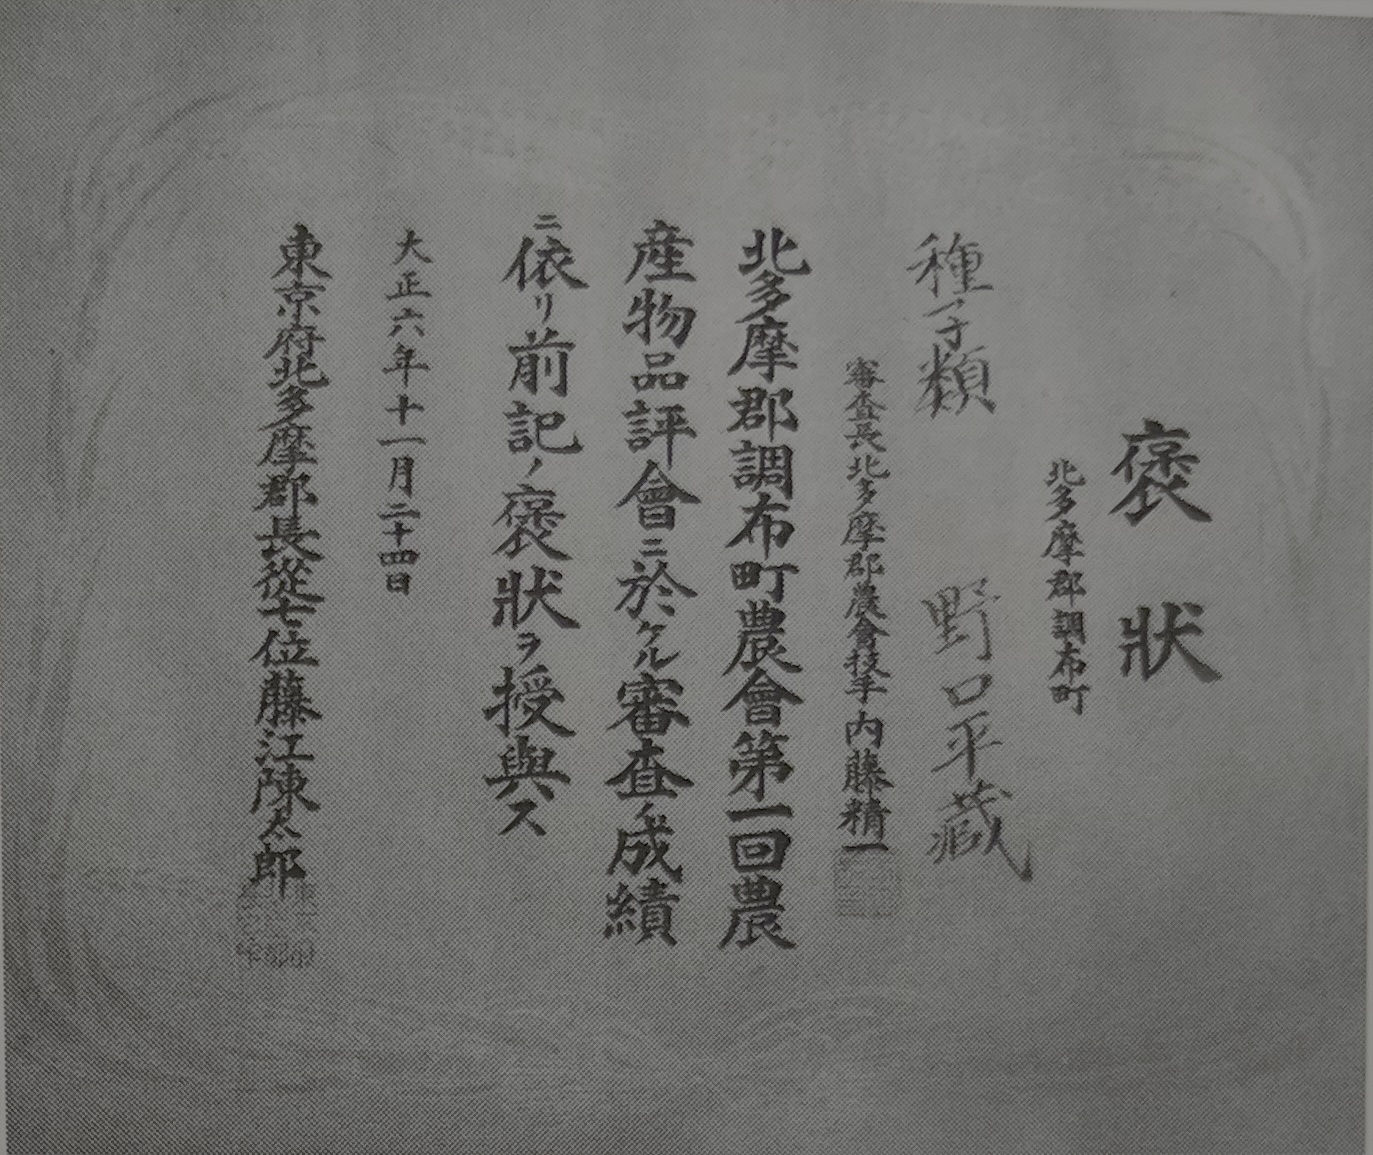 褒狀
北多摩郡調布町
種子類　野口平藏
審査長北多摩郡農會技手内藤精一
北多摩郡調布町農會第一回農
産物品評會ニ於ケル審査ノ成績
ニ依リ前記ノ褒狀ヲ授與ス
大正六年十一月二十四日
東京府北多摩郡長從七位藤江陳太郎